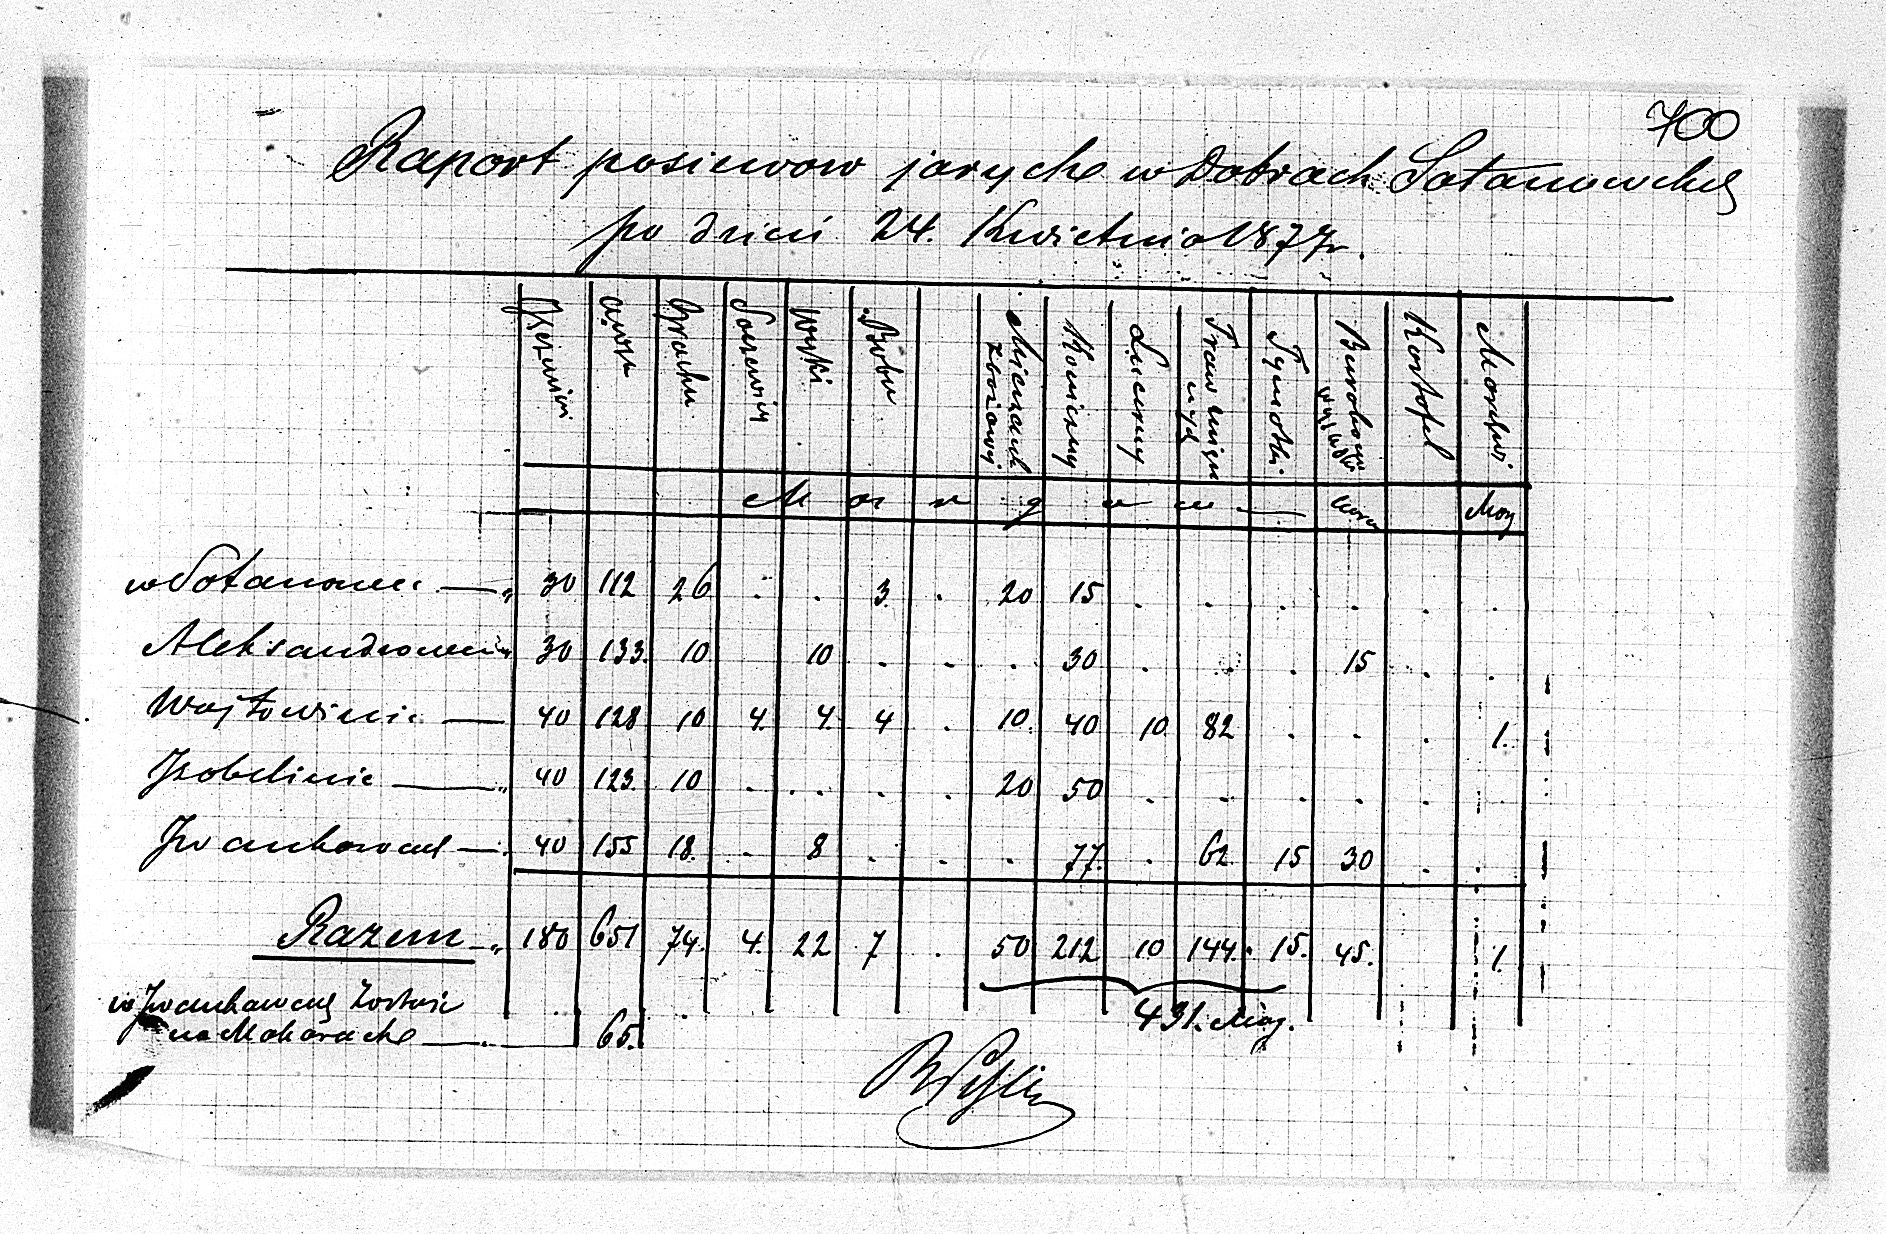 700
Raport posiewow jarych w Dobrach Satanowskich
po dzień 24. Kwietnia 1877 r.
Pszenicy Owsa Grochu Soczewicy Wyki Bobu Mieszanek zbożowy Koniczyny Lucerny Traw Tymotki Buraków Kartofel Marchwi
M o r g o w — Morg Morg
w Satanowie — „ 30 112 26 . . 3. . 20 15 . . . . . .
Aleksandrowce „ 30 133. 10 10 . . . 30 . . . 15 . .
Wojtowinie — 40 128 10 4 4 4 . 10. 40 10 82 . . . 1.
Izabelinie — „ 40 123. 10 . . . . 20 50 . . . . .
Iwankowcach — . 40 155 18. . 8 . . . 77. . 62 15 30 . .
Razem — „ 180 651 74. 4. 22 7 . 50 212 10 144. 15. 45. 1.
431. Morg.
w Iwankowcach
na — 65.